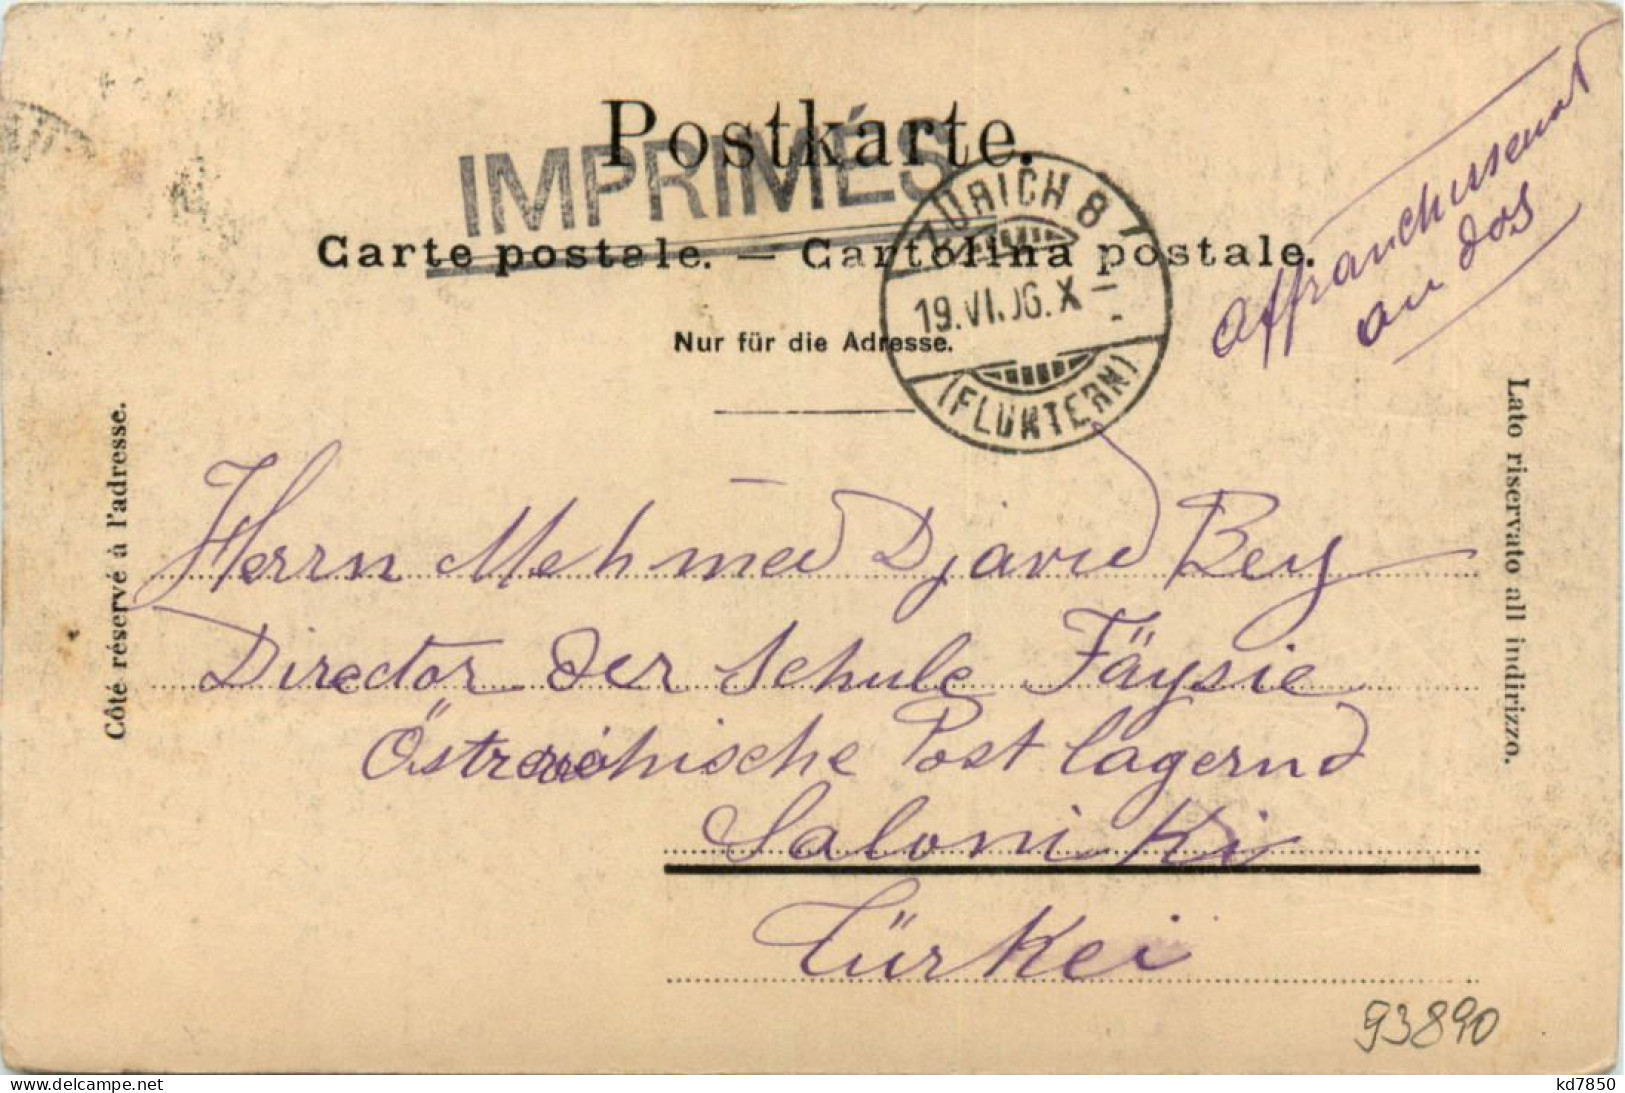 Postkarte.
IMPRIMÉS
Carte postale. — Cartolina postale.
Nur für die Adresse.
ZÜRICH 8
19.VI.06.X-
(FLUNTERN)
Affranchissement
au dos
Côté réservé à l'adresse.
Lato riservato all indirizzo.
Herrn Mehmed Djavid Bey
Director der Schule Fäysie
Östreichische Post lagernd
Saloniki
Türkei
93890
delcampe.net
kd7850